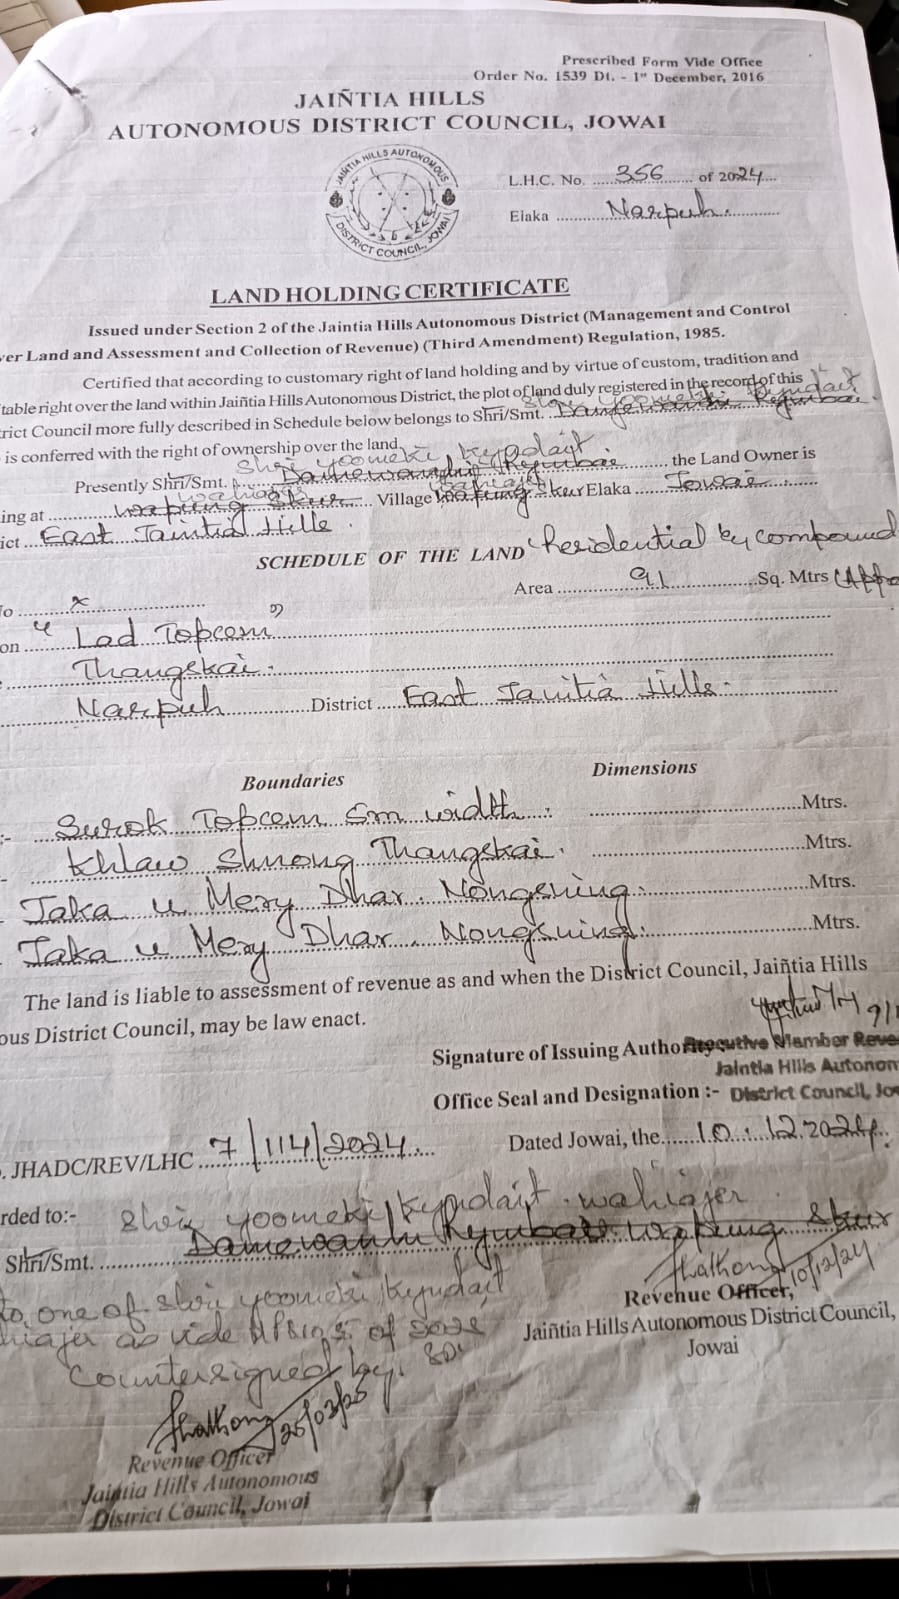 Prescribed Form Vide Office
Order No. 1539 Dt. - 1st December, 2016
JAIÑTIA HILLS
AUTONOMOUS DISTRICT COUNCIL, JOWAI
JAIÑTIA HILLS AUTONOMOUS
DISTRICT COUNCIL, JOWAI
L.H.C. No. 356 of 2024
Elaka Narpuh.
LAND HOLDING CERTIFICATE
Issued under Section 2 of the Jaintia Hills Autonomous District (Management and Control
ver Land and Assessment and Collection of Revenue) (Third Amendment) Regulation, 1985.
Certified that according to customary right of land holding and by virtue of custom, tradition and
table right over the land within Jaiñtia Hills Autonomous District, the plot of land duly registered in the record of this
Shri yoomeki kyndait
rict Council more fully described in Schedule below belongs to Shri/Smt. Rymbai.
is conferred with the right of ownership over the land.
Shri yoomeki kyndait
Presently Shri/Smt. Damewanhi Rymbai the Land Owner is
wahiajer
ing at Wapung Skur Village Wapung Skur Elaka Jowai
ict East Jaintia Hills.
SCHEDULE OF THE LAND Residential by compound
o x Area 91 Sq. Mtrs (Appro
on "Lad Topcem"
Thangskai.
Narpuh District East Jaintia Hills.
Boundaries Dimensions
:- Surok Topcem 5m width. Mtrs.
- Khlaw Shnong Thangskai. Mtrs.
Jaka u Mery Dhar. Nongsning. Mtrs.
Jaka u Mery Dhar. Nongsning. Mtrs.
The land is liable to assessment of revenue as and when the District Council, Jaiñtia Hills
ous District Council, may be law enact.
Signature of Issuing Authority Executive Member Reve
Jaintia Hills Autonom
Office Seal and Designation :- District Council, Jo
. JHADC/REV/LHC 7/114/2024. Dated Jowai, the 10.12.2024.
rded to:-
Shri yoomeki kyndait. wahiajer
Shri/Smt. Damewanhi Rymbai Wapung Skur
10/12/24
Revenue Officer,
Jaiñtia Hills Autonomous District Council,
Jowai
to one of shri yoomeki kyndait
hiajer as vide of
Countersigned by. Sd/
25/03/25
Revenue Officer
Jaintia Hills Autonomous
District Council, Jowai